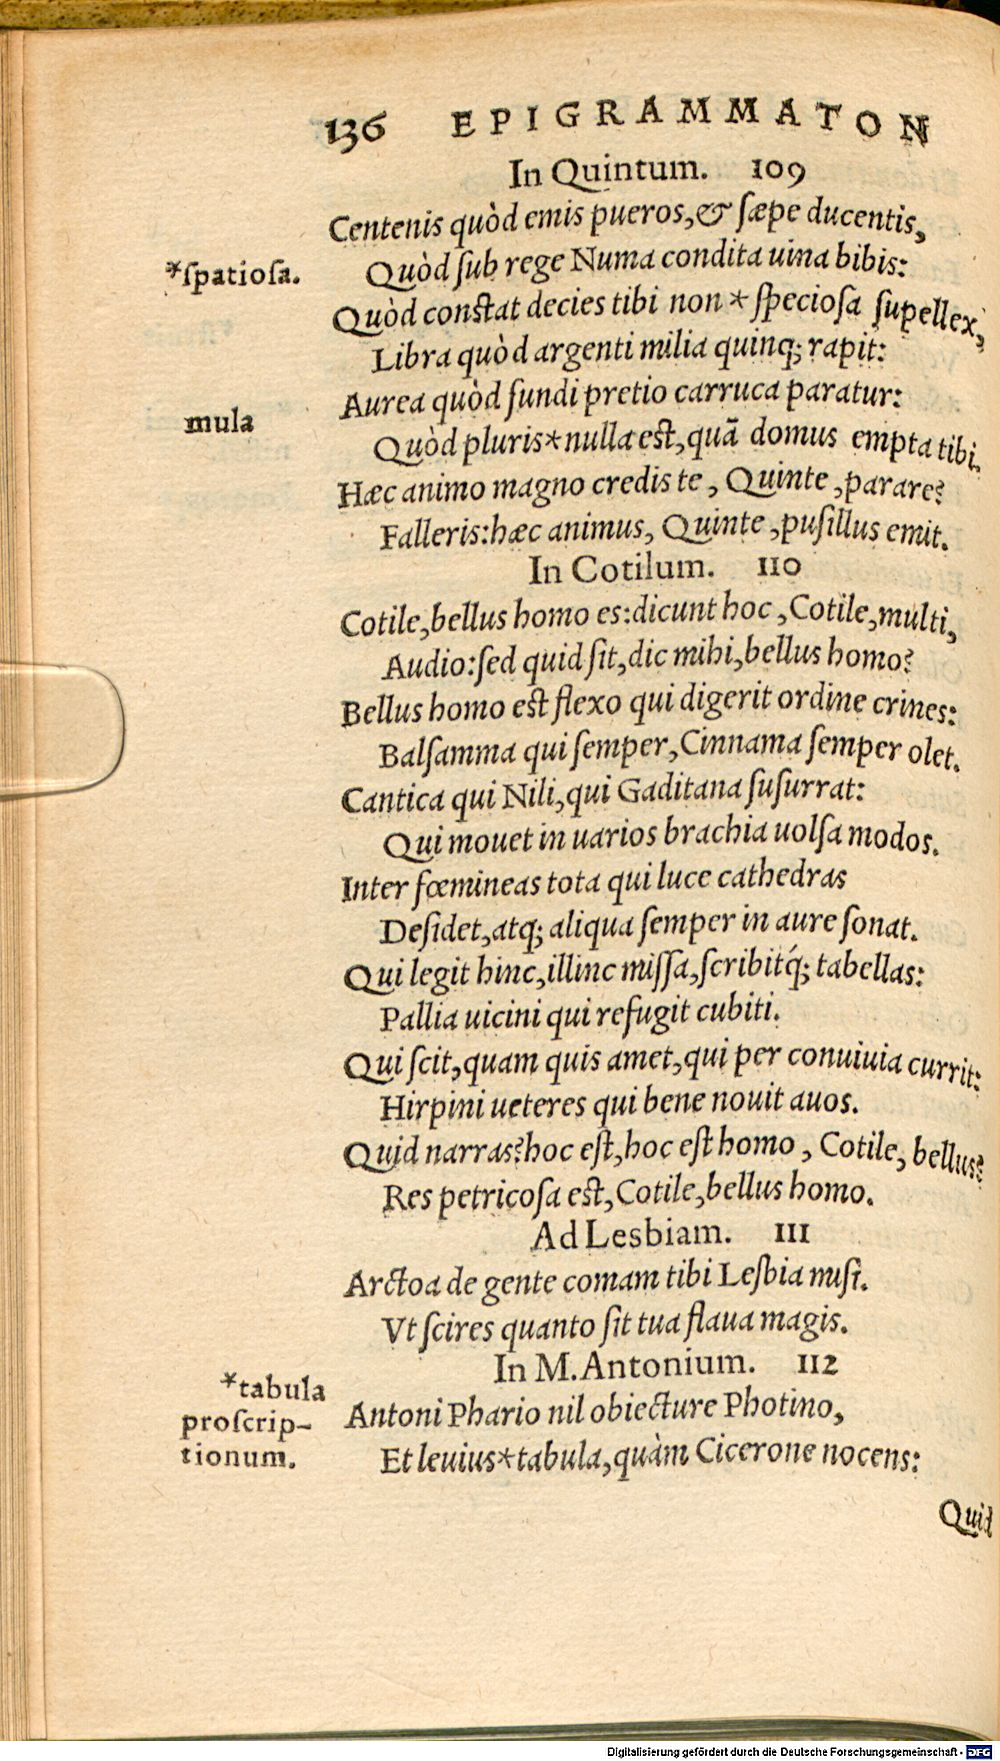 136 EPIGRAMMATON
In Quintum. 109
Centenis quòd emis pueros, & ſæpe ducentis,
*ſpatioſa.
Quòd ſub rege Numa condita uina bibis:
Quòd conſtat decies tibi non * ſpecioſa ſupellex,
Libra quòd argenti milia quinq; rapit:
Aurea quòd fundi pretio carruca paratur:
mula
Quòd pluris*nulla eſt, quã domus empta tibi.
Hæc animo magno credis te, Quinte, parare?
Falleris: hæc animus, Quinte, puſillus emit.
In Cotilum. 110
Cotile, bellus homo es: dicunt hoc, Cotile, multi,
Audio: ſed quid ſit, dic mihi, bellus homo?
Bellus homo eſt flexo qui digerit ordine crines:
Balſamma qui ſemper, Cinnama ſemper olet.
Cantica qui Nili, qui Gaditana ſuſurrat:
Qui mouet in uarios brachia uolſa modos.
Inter fœmineas tota qui luce cathedras
Deſidet, atq; aliqua ſemper in aure ſonat.
Qui legit hinc, illinc miſſa, ſcribitq́; tabellas:
Pallia uicini qui refugit cubiti.
Qui ſcit, quam quis amet, qui per conuiuia currit:
Hirpini ueteres qui bene nouit auos.
Quid narras? hoc eſt, hoc eſt homo, Cotile, bellus?
Res petricoſa eſt, Cotile, bellus homo.
Ad Lesbiam. 111
Arctoa de gente comam tibi Leſbia miſi.
Vt ſcires quanto ſit tua flaua magis.
In M. Antonium. 112
*tabula
proſcrip-
tionum.
Antoni Phario nil obiecture Photino,
Et leuius*tabula, quàm Cicerone nocens:
Quid
Digitalisierung gefördert durch die Deutsche Forschungsgemeinschaft - DFG